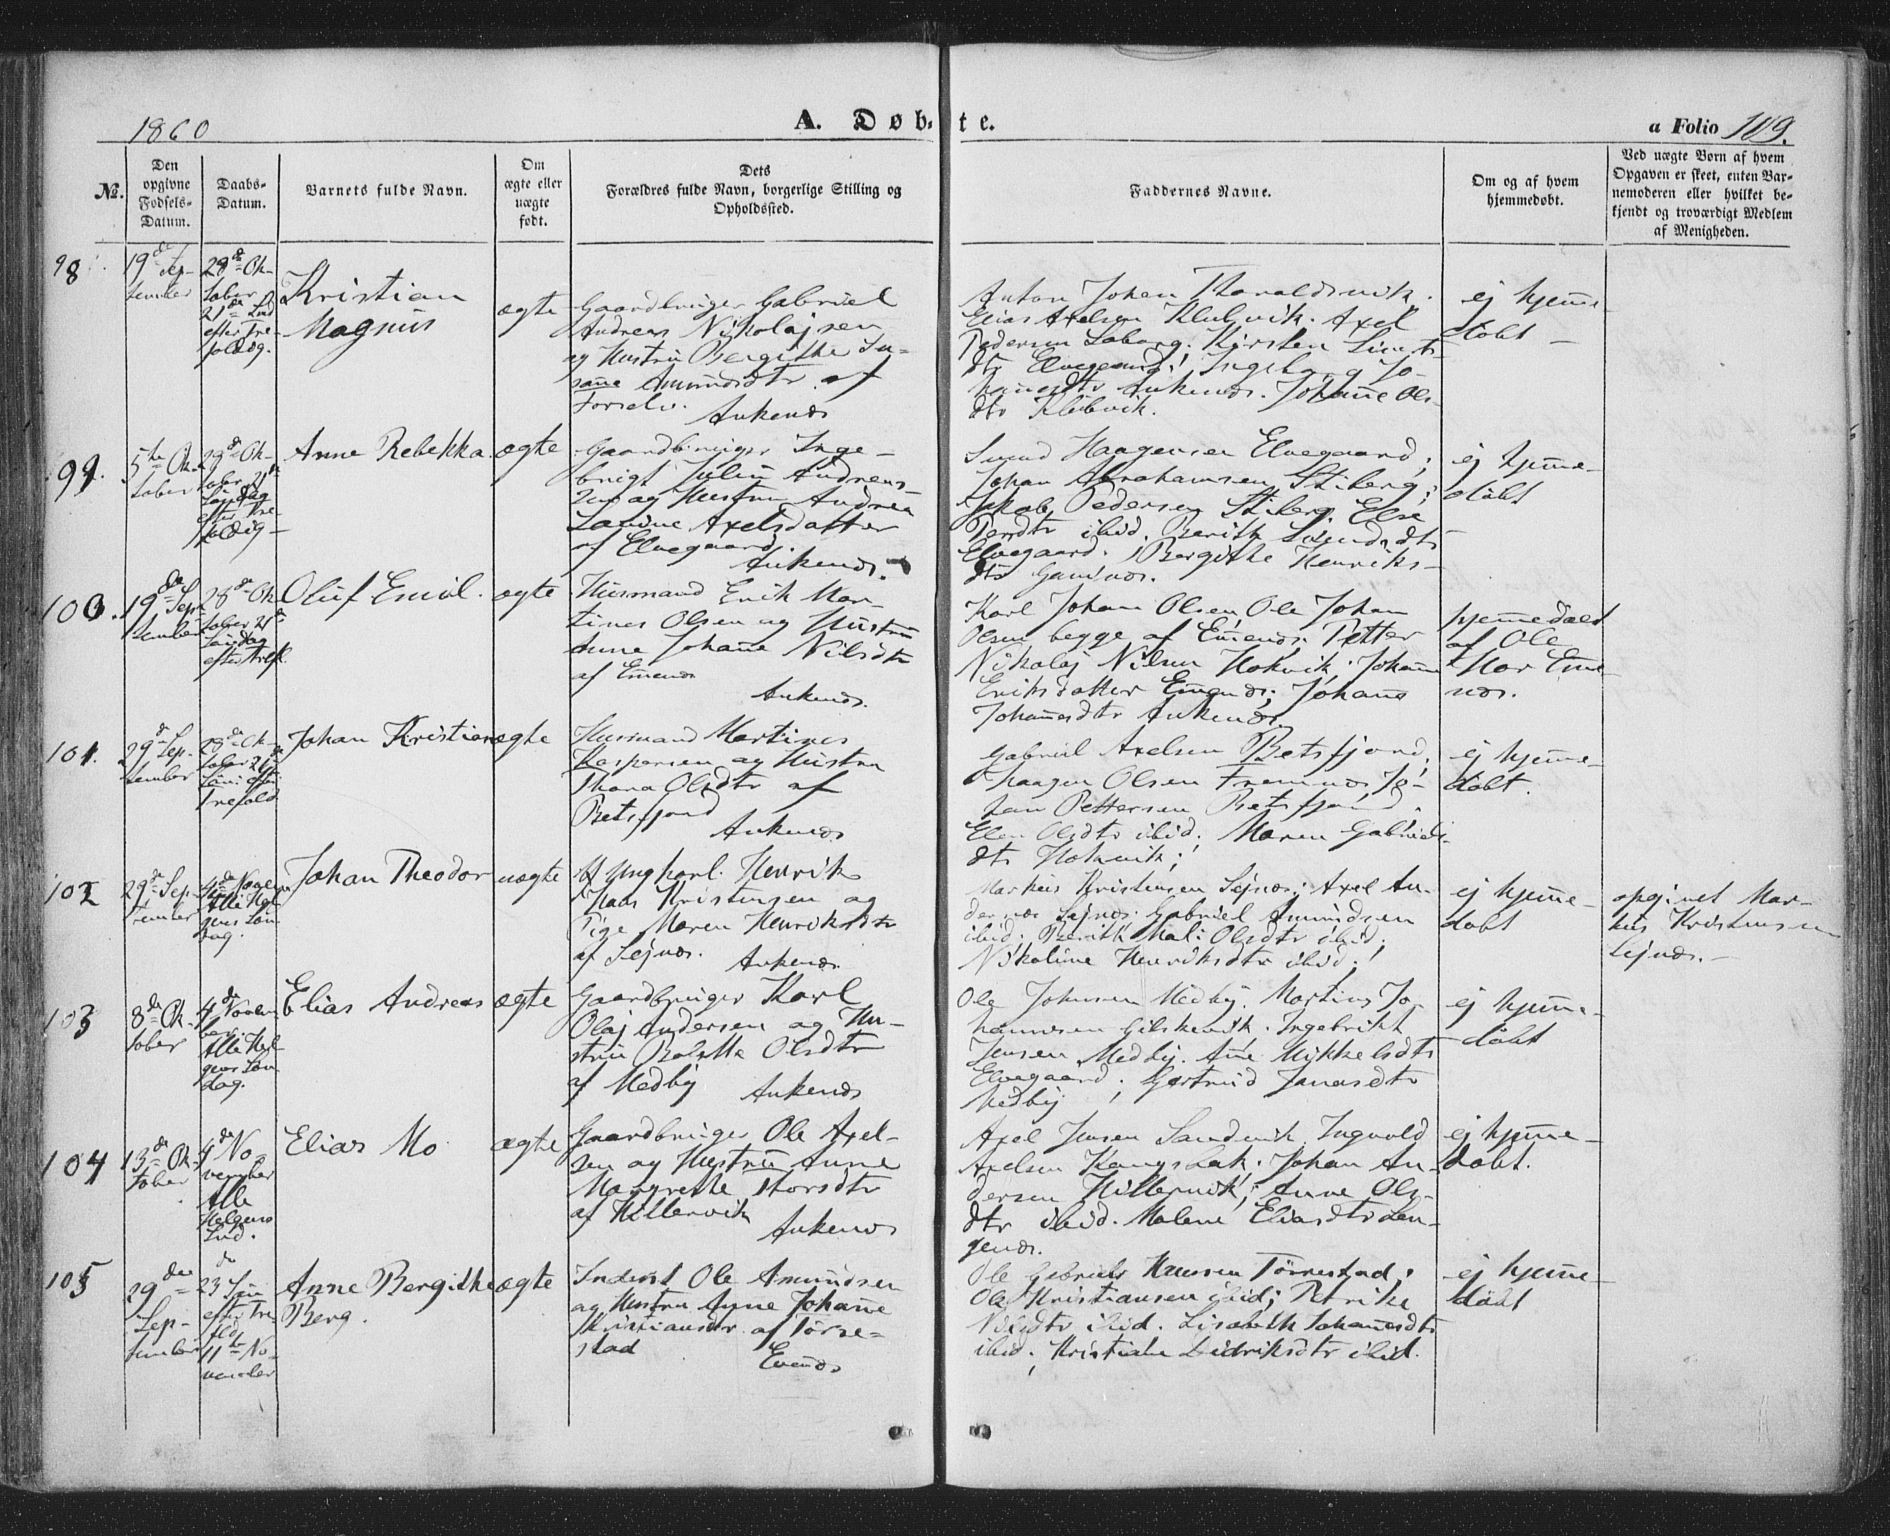 1860
A. Døbte.
a Folio 109.
No.
Den opgivne Fødsels-Datum.
Daabs-Datum.
Barnets fulde Navn.
Om ægte eller uægte født.
Dets Forældres fulde Navn, borgerlige Stilling og Opholdssted.
Faddernes Navne.
Om og af hvem hjemmedøbt.
Ved uægte Børn af hvem Opgaven er skeet, enten Barnemoderen eller hvilket bekjendt og troværdigt Medlem af Menigheden.
98.
19de Sep-
tember
28de Ok-
tober
21de
efter Tre-
foldig.
Kristian
Magnus
ægte
Gaardbruger Gabriel
Andreas Nikolajsen
og Hustru Bergithe Su-
sane Amundsdtr. af
Ankenæs
Anton Johan
Elias Axelsen Klubvik. Axel
Pedersen Kirsten
dtr Elvegaard; Ingeborg Jo-
hannesdtr Ankenæs. Johanne Ols-
dtr Klubvik.
ej hjemme
døbt
99.
5te Ok-
tober
28de Ok-
tober 21de
Søndag
efter Tre-
foldig
Anne Rebekka.
ægte
Gaardbruger Inge-
brigt Julin Andreas-
sen og Hustru Andrea
Lavine Axelsdatter
af Elvegaard
Ankenæs.
Haagensen Elvegaard;
Johan Abrahamsen Stiberg;
Jakob Pedersen Stiberg. Else
dtr ibid. Berith
Elvegaard. Bergithe Henriks-
dtr
ej hjemme-
døbt
100.
19de Sep-
tember
28de Ok-
tober 21de
Søndag
efter Trefl.
Oluf Emil.
ægte
Husmand Erik Mar-
tines Olsen og Hustru
Anne Johanne Nilsdtr
af Emenæs
Ankenæs.
Karl Johan Olsen, Ole Johan
Olsen begge af Emenæs; Petter
Nikolaj Nilsen Hokvik; Johanne
Eriksdatter Emenæs; Johane
Johannesdtr Ankenæs
hjemmedøbt
af Ole
Eme-
næs.
101.
29de Sep-
tember
28de Ok-
tober 21de
Trefold.
Johan Kristian
ægte
Husmand Martines
Kaspersen og Hustru
Olsdtr af
Beisfjord
Ankenæs
Gabriel Axelsen Beisfjord;
Haagen Olsen Fremnæs; Jo-
han Pettersen Beisfjord.
Elen Olsdtr ibid; Maren Gabriels-
dtr Hokvik;
ej hjemme-
døbt.
102
29de Sep-
tember
4de Novem
Alle Hel-
gens Søn-
dag.
Johan Theodor
uægte
Ungkarl. Henrik
Kristensen og
Pige Maren Henriksdtr
af Sejnæs.
Ankenæs
Markus Kristensen Sejnæs; Axel An-
Sejnæs. Gabriel Amundsen
ibid. Berith Olsdtr ibid;
Nikoline Henriksdtr ibid;
ej hjemme-
døbt
opgivet Mar-
kus Kristensen
Sejnæs.
103
8de Ok-
tober
4de Novem-
ber
Alle Hel-
gens Søn-
dag.
Elias Andreas
ægte
Gaardbruger Karl
Olaj Andersen og Hu-
stru Olsdtr
af Medby
Ankenæs
Ole Johnsen Medby. Martinus Jo-
hannesen Ingebrikt
Jensen Medby. Ane Mikkelsdtr
Elvegaard; Gertrud Jonasdtr
Medby
ej hjemme-
døbt
104
13de Ok-
tober
4de No-
vember
Alle
Helgens
Snd.
Elias Mo
ægte
Gaardbruger Ole Axel-
sen og Hustru Anne
Margrethe Thorsdtr
af Hillervik
Ankenæs
Axel Jensen Sandvik. Ingvald
Axelsen Kongsbak; Johan An-
dersen Hillervik; Anne Ols-
dtr ibid. Malene Eliasdtr Lan-
genæs.
ej hjemme-
døbt.
105
29de
Sep-
tember
23 Snd
efter Tre
fld
11te No-
vember
Anne Bergithe
Berg.
ægte
Inderst Ole Amundsen
og Hustru Anne Johanne
Kristiansdtr. af Tørre-
stad
Evenæs
Ole Gabriels Hansen Tørrestad;
Ole Kristiansen ibid; Petrike
Nilsdtr ibid. Lisabeth Johanesdtr
ibid; Kristiane Didriksdtr ibid.
ej hjemme-
døbt